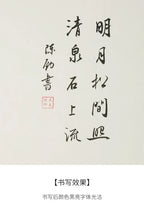 明月松間照
清泉石上流
陈钧書
【书写效果】
书写后颜色黑亮字体光洁